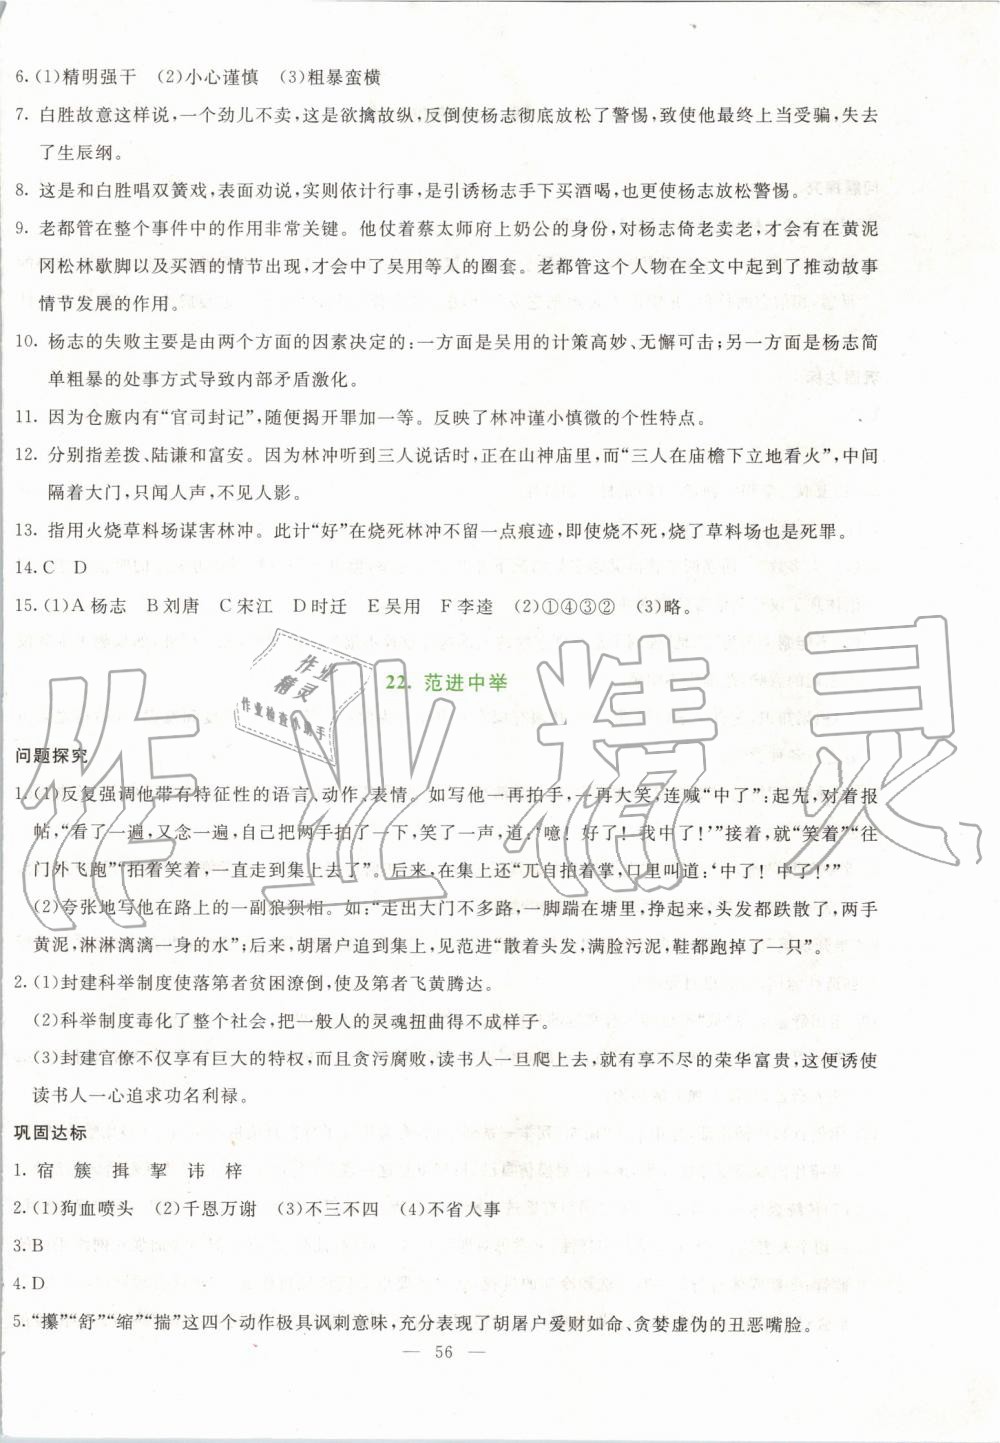 6. (1)精明强干　(2)小心谨慎　(3)粗暴蛮横
7. 白胜故意这样说，一个劲儿不卖，这是欲擒故纵，反倒使杨志彻底放松了警惕，致使他最终上当受骗，失去
了生辰纲。
8. 这是和白胜唱双簧戏，表面劝说，实则依计行事，是引诱杨志手下买酒喝，也更使杨志放松警惕。
9. 老都管在整个事件中的作用非常关键。他仗着蔡太师府上奶公的身份，对杨志倚老卖老，才有在黄泥
冈松林歇脚以及买酒的情节出现，才会中了吴用等人的圈套。老都管这个人物在全文中起到了推动故事
情节发展的作用。
10. 杨志的失败主要是由两个方面的因素决定的：一方面是吴用的计策高妙、无懈可击；另一方面是杨志简
单粗暴的处事方式导致内部矛盾激化。
11. 因为仓廒内有“官司封记”，随便揭开罪加一等。反映了林冲谨小慎微的个性特点。
12. 分别指差拨、陆谦和富安。因为林冲听到三人说话时，正在山神庙里，而“三人在庙檐下立地看火”，中间
隔着大门，只闻人声，不见人影。
13. 指用火烧草料场谋害林冲。此计“好”在烧死林冲不留一点痕迹，即使烧不死，烧了草料场也是死罪。
14. C　D
15. (1)A 杨志　B 刘唐　C 宋江　D 时迁　E 吴用　F 李逵　(2)①④③②　(3)略。
22. 范进中举
问题探究
1. (1)反复强调他带有特征性的语言、动作、表情。如写他一再拍手，一再大笑，连喊“中了”：起先，对着报
帖，“看了一遍，又念一遍，自己把两手拍了一下，笑了一声，道：‘噫！好了！我中了！’”接着，就“笑着”“往
门外飞跑”“拍着笑着，一直走到集上去了”。后来，在集上还“兀自拍着掌，口里叫道：‘中了！中了！’”
(2)夸张地写他在路上的一副狼狈相。如：“走出大门不多路，一脚踹在塘里，挣起来，头发都跌散了，两手
黄泥，淋淋漓漓一身的水”；后来，胡屠户追到集上，见范进“散着头发，满脸污泥，鞋都跑掉了一只”。
2. (1)封建科举制度使落第者贫困潦倒，使及第者飞黄腾达。
(2)科举制度毒化了整个社会，把一般人的灵魂扭曲得不成样子。
(3)封建官僚不仅享有巨大的特权，而且贪污腐败，读书人一旦爬上去，就有享不尽的荣华富贵，这便诱使
读书人一心追求功名利禄。
巩固达标
1. 宿　簇　揖　挈　讳　梓
2. (1)狗血喷头　(2)千恩万谢　(3)不三不四　(4)不省人事
3. B
4. D
5. “攥”“舒”“缩”“揣”这四个动作极具讽刺意味，充分表现了胡屠户爱财如命、贪婪虚伪的丑恶嘴脸。
— 56 —
作业精灵
作业
精灵
作业检查小帮手